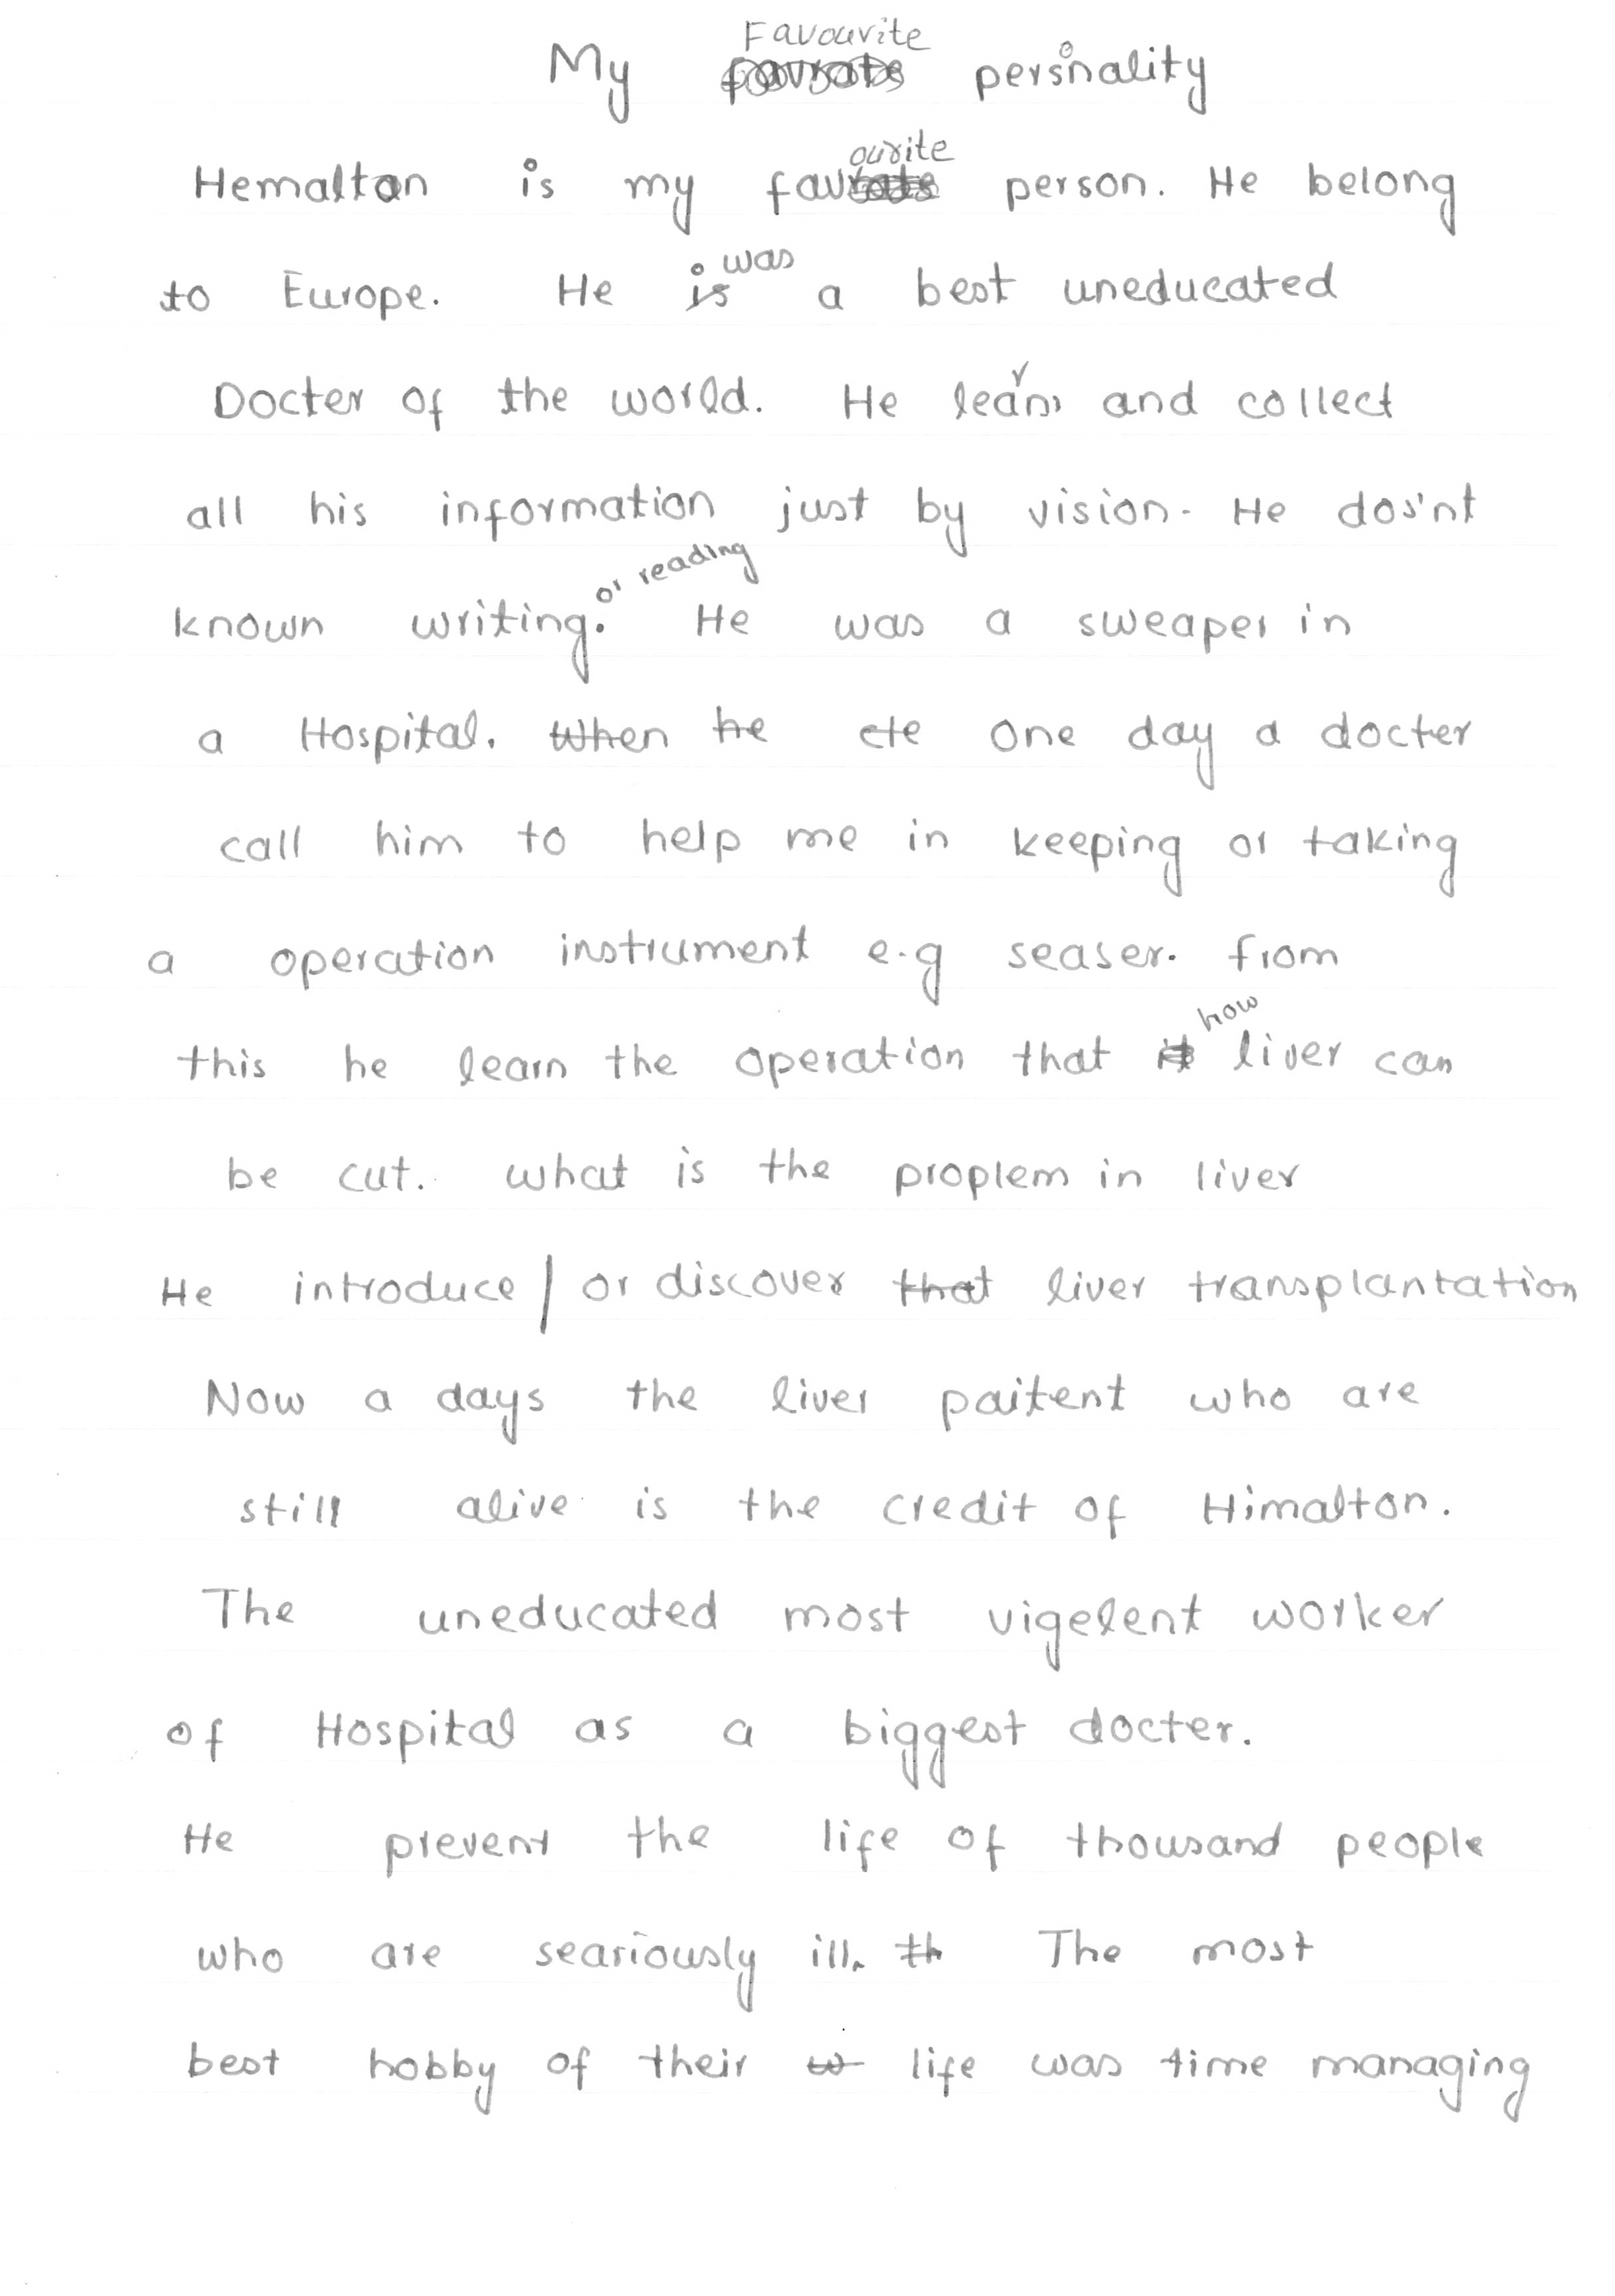 My Favourite personality
Hemaltan is my favourite person. He belong
to Europe. He was a best uneducated
Docter of the world. He learn and collect
all his information just by vision. He dos'nt
known writing or reading. He was a sweaper in
a Hospital. One day a docter
call him to help me in keeping or taking
a operation instrument e.g seaser. from
this he learn the operation that how liver can
be cut. what is the proplem in liver
He introduce / or discover liver transplantation
Now a days the liver paitent who are
still alive is the credit of Himalton.
The uneducated most vigelent worker
of Hospital as a biggest docter.
He prevent the life of thousand people
who are seariously ill. The most
best hobby of their life was time managing